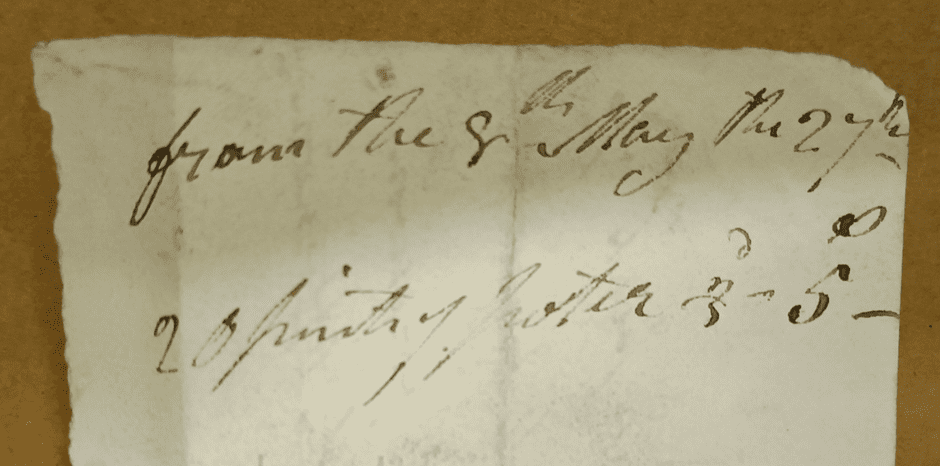 from the 8th May the 27th
20 pints of porter 3d - 5s -